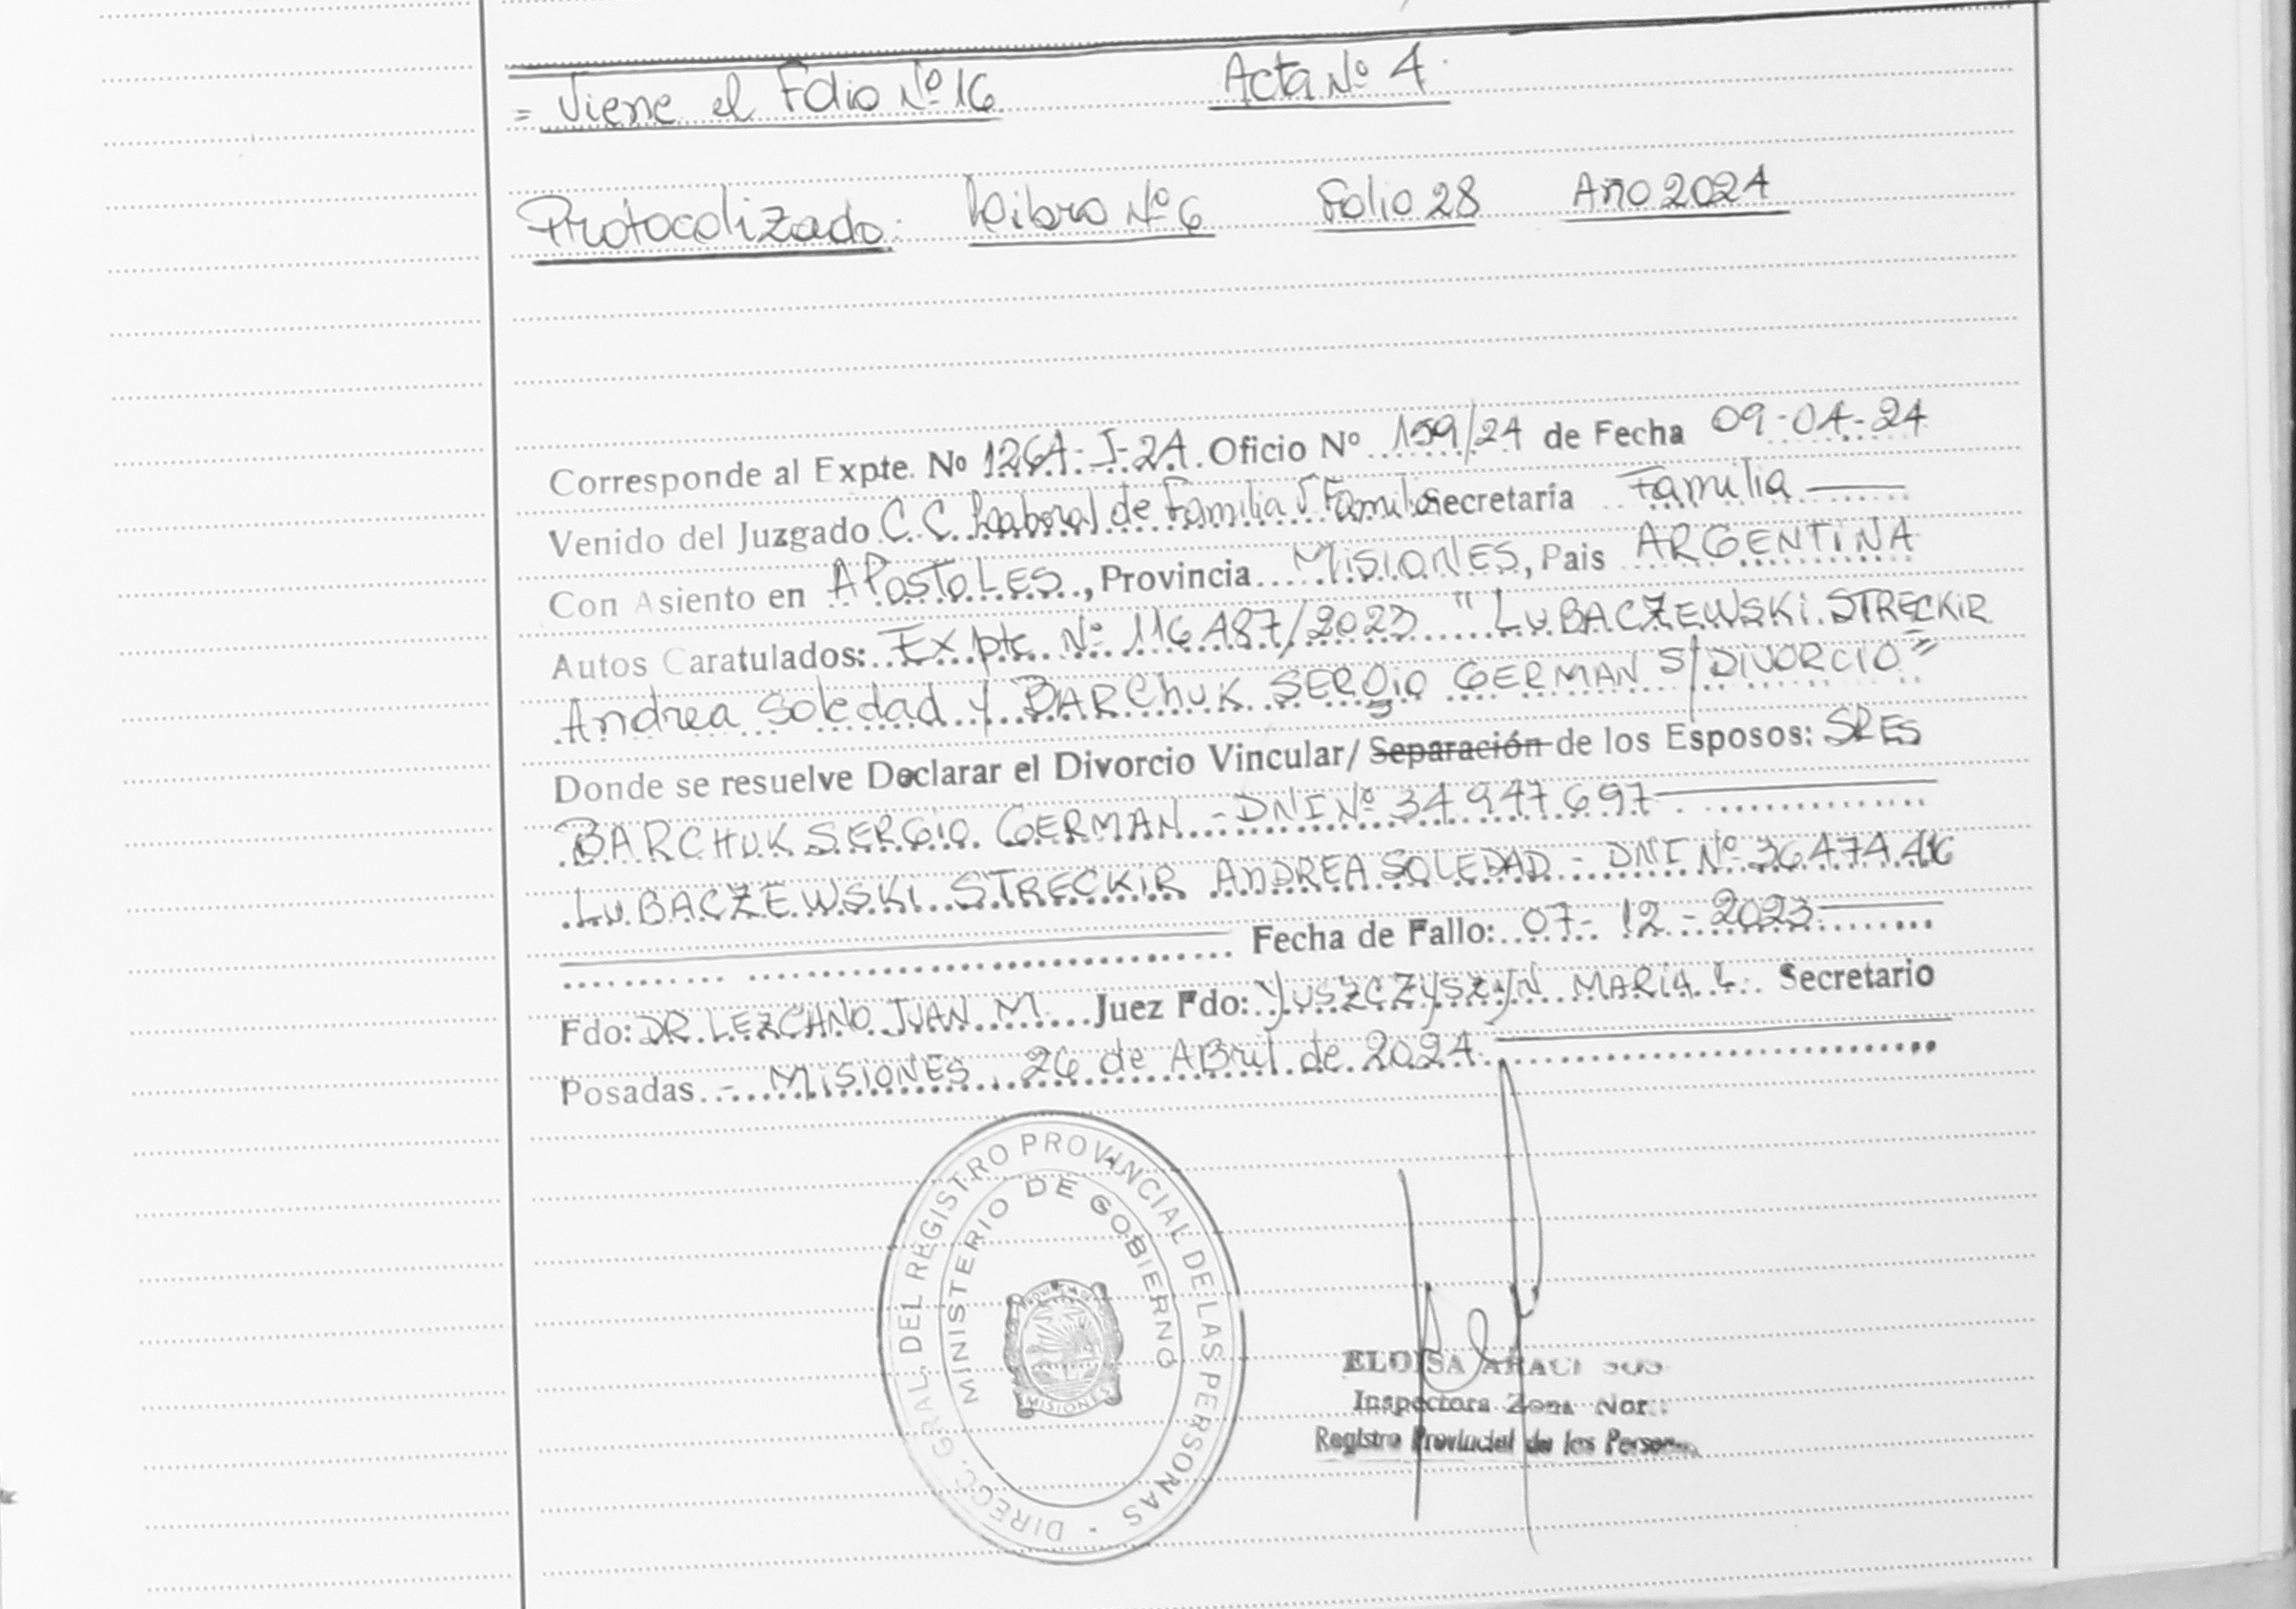 = Viene el Folio Nº 16 Acta Nº 4.
Protocolizado: Libro Nº 6 Folio 28 Año 2024
Corresponde al Expte. Nº 1264-J-24. Oficio Nº 159/24 de Fecha 09-04-24
Venido del Juzgado C.C. Laboral de Familia Secretaría Familia
Con Asiento en APOSTOLES, Provincia MISIONES, Pais ARGENTINA
Autos Caratulados: Expte Nº 116487/2023 "LUBACZEWSKI STRECKIR
Andrea Soledad y BARCHUK SERGIO GERMAN S/DIVORCIO"
Donde se resuelve Declarar el Divorcio Vincular/ Separación de los Esposos: SRES
BARCHUK SERGIO GERMAN - DNI Nº 34947697
LUBACZEWSKI STRECKIR ANDREA SOLEDAD - DNI Nº
Fecha de Fallo: 07-12-2023
Fdo: DR. LEZCANO JUAN M. Juez Fdo: YUSZCZYSZYN MARIA L. Secretario
Posadas - MISIONES 26 de ABril de 2024
DIRECC. GRAL. DEL REGISTRO PROVINCIAL DE LAS PERSONAS
MINISTERIO DE GOBIERNO
MISIONES
ELOISA
Inspectora Zona
Registro Provincial de las